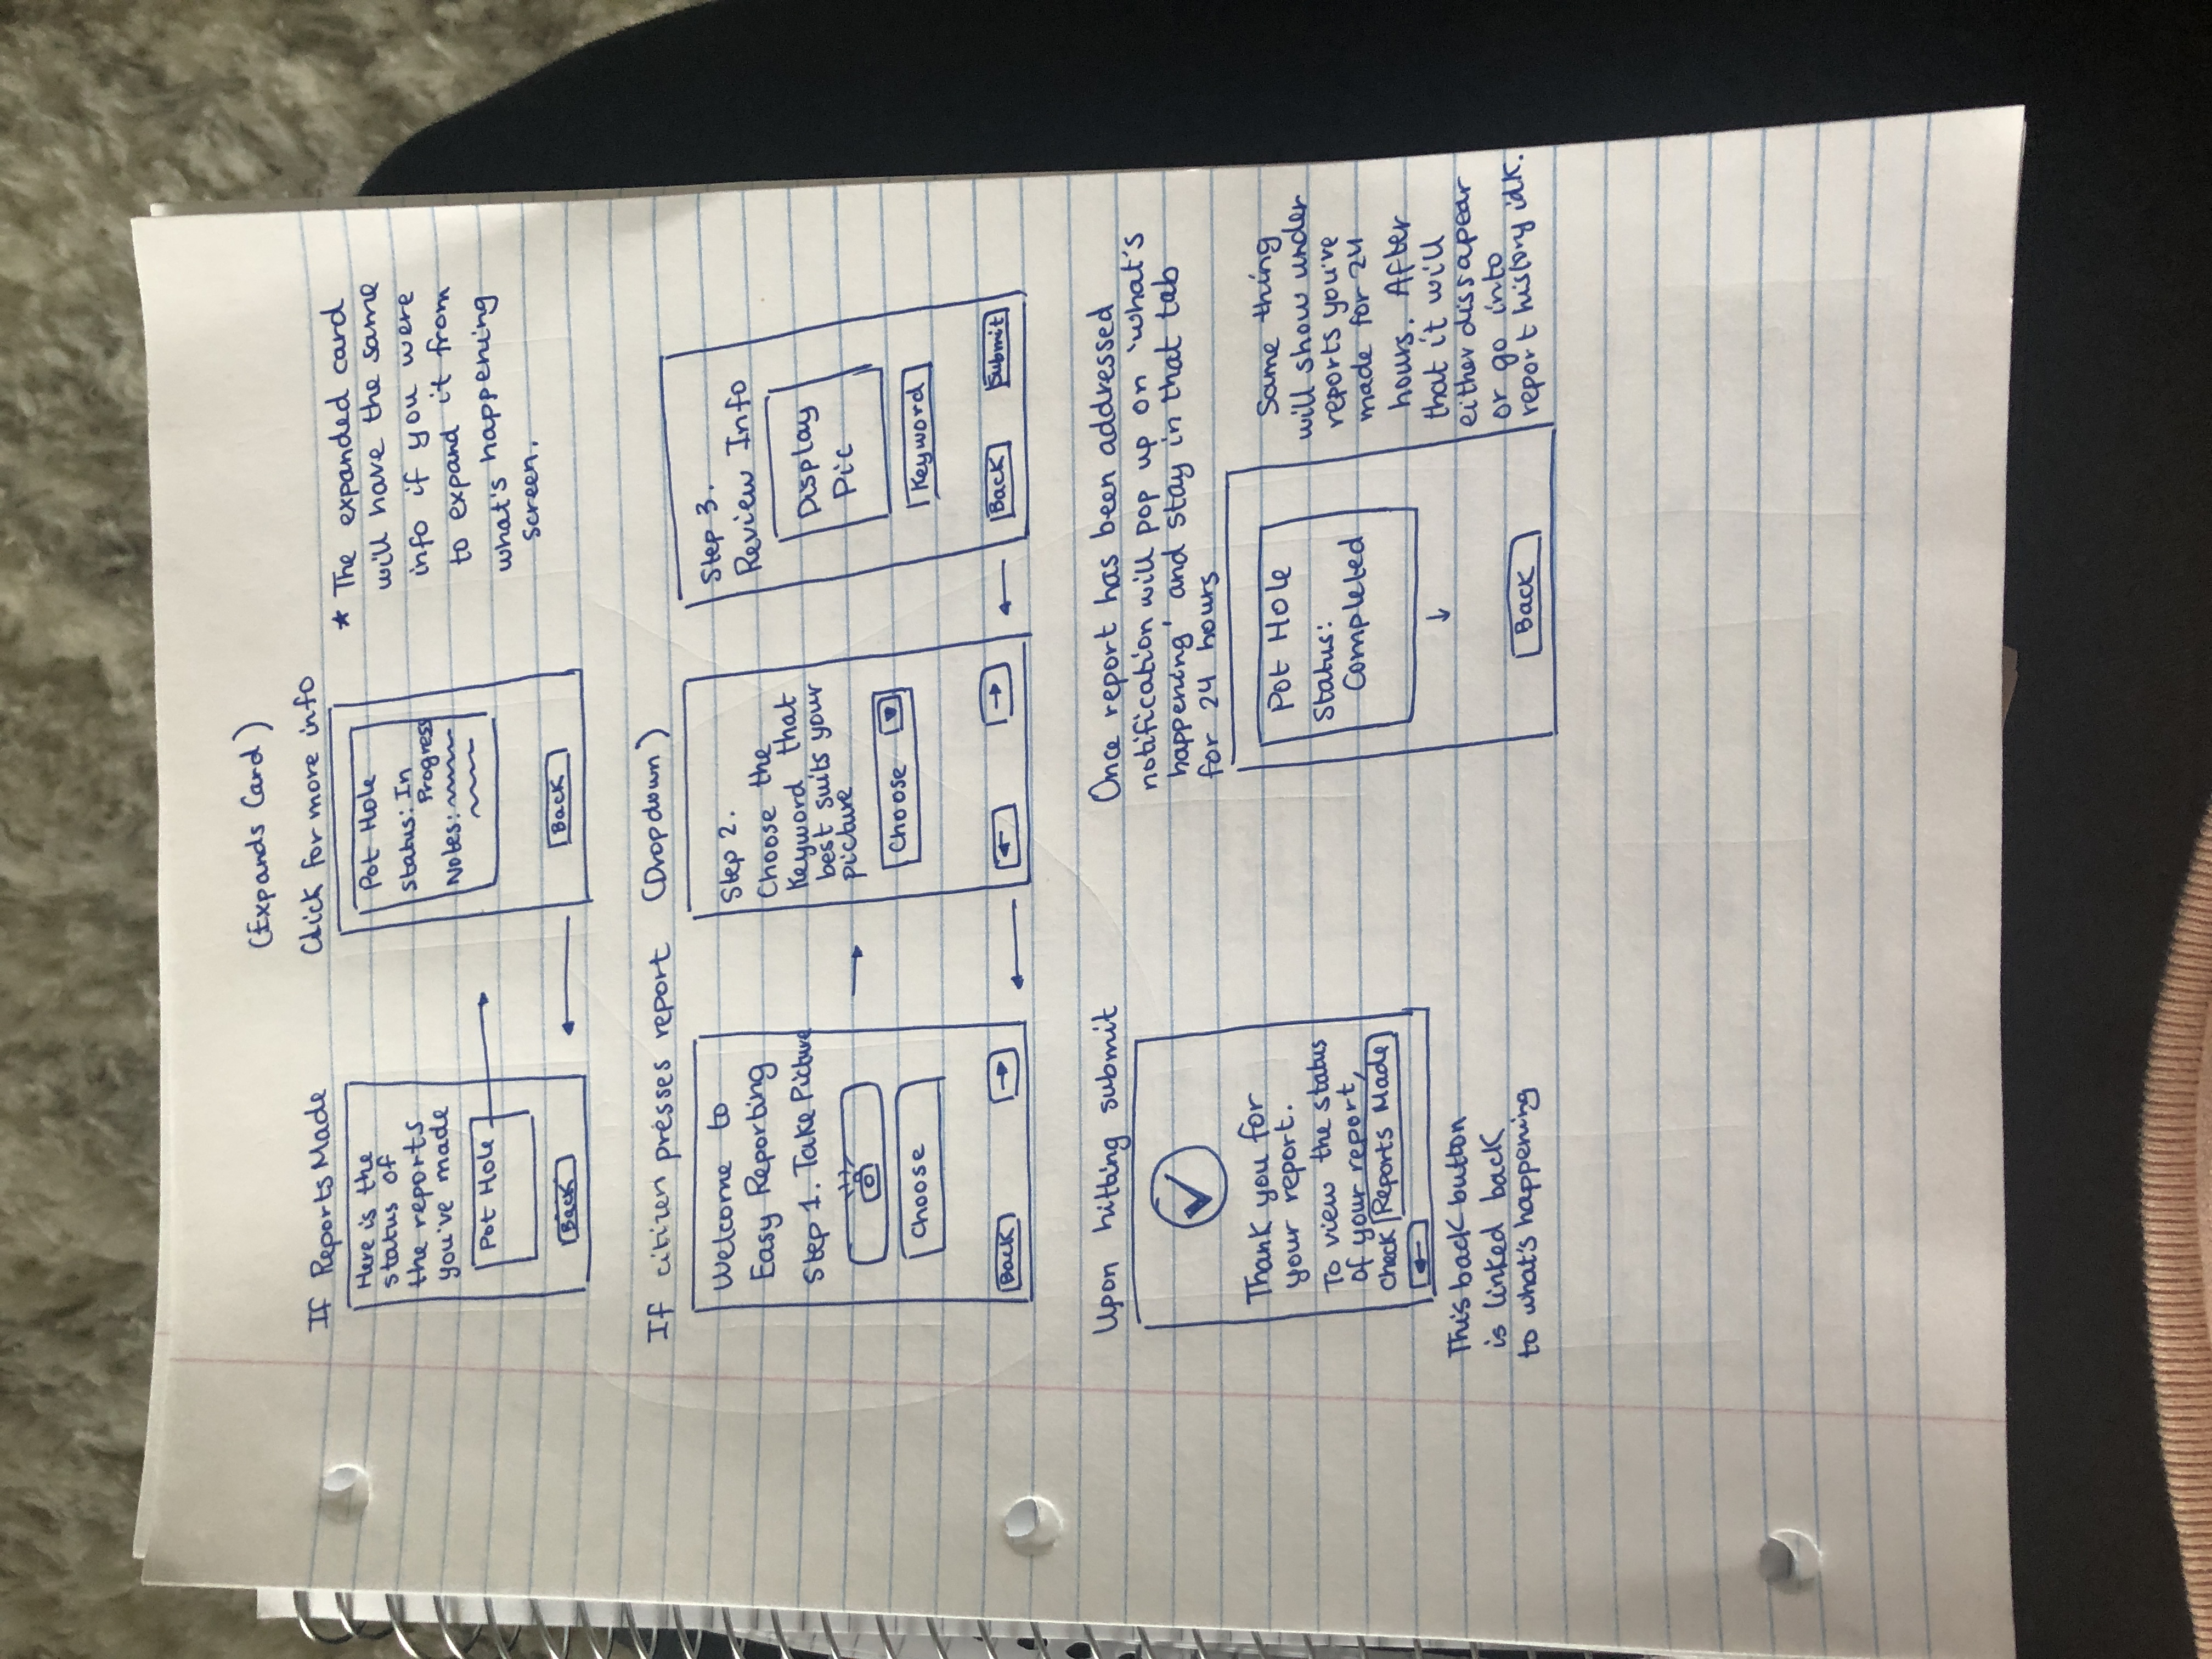 (Expands Card)
If Reports Made
Click for more info
Here is the
status of
the reports
you've made
Pot Hole
Back
Pot Hole
Status: In
Progress
Notes:
Back
* The expanded card
will have the same
info if you were
to expand it from
what's happening
screen.
If citizen presses report
(Dropdown)
Welcome to
Easy Reporting
Step 1. Take Picture
Choose
Back
Step 2.
Choose the
Keyword that
best suits your
picture
Choose
Step 3.
Review Info
Display
Pic
Keyword
Back
Submit
Upon hitting submit
Thank you for
your report.
To view the status
of your report,
check Reports Made
This back button
is linked back
to what's happening
Once report has been addressed
notification will pop up on 'what's
happening' and stay in that tab
for 24 hours
Pot Hole
Status:
Completed
Back
Same thing
will show under
reports you've
made for 24
hours. After
that it will
either dissapear
or go into
report history idk.